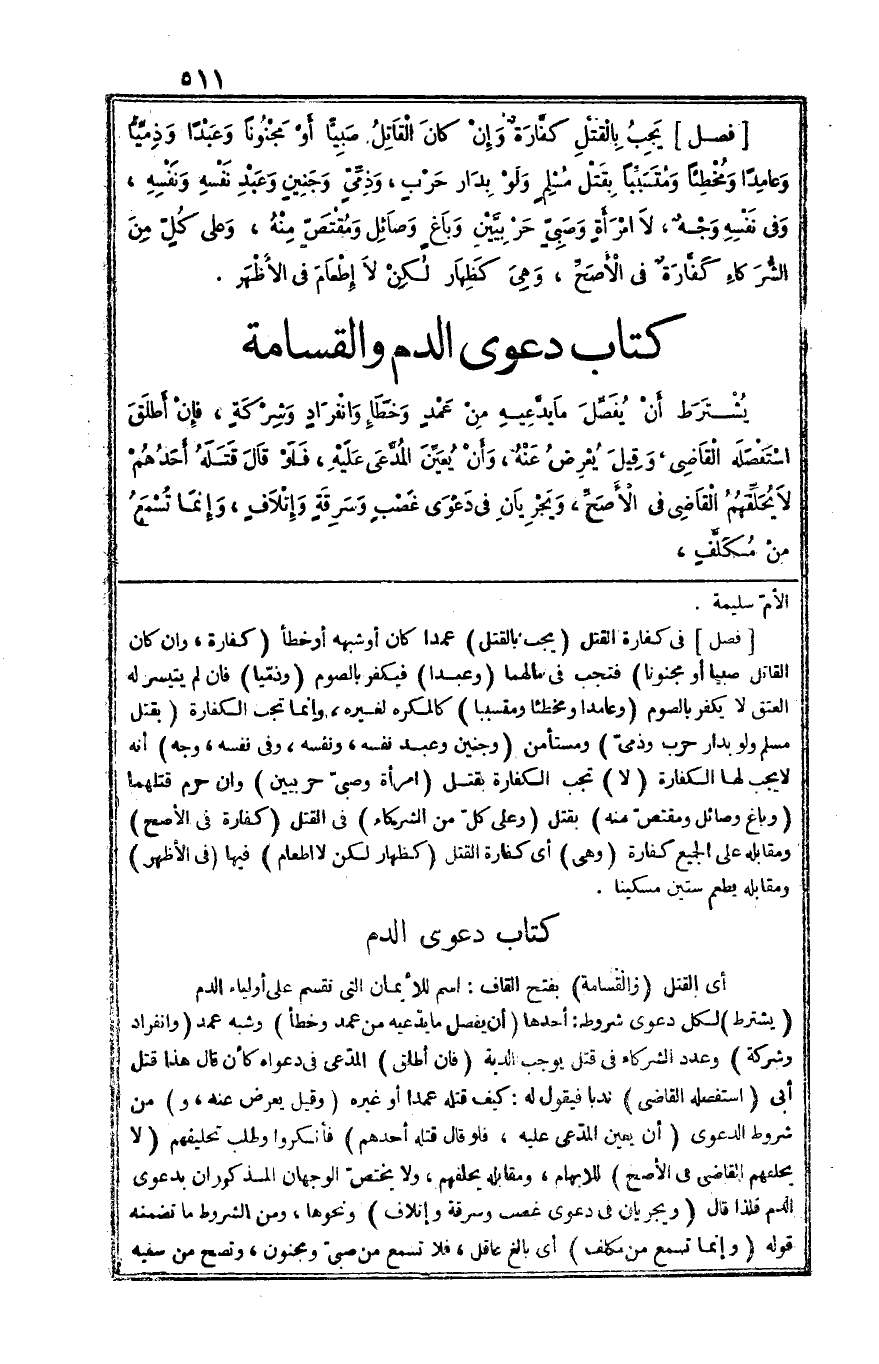 ٥١١
[ فصل ] يَجِبُ بِالْقَتْلِ كَفَّارَةٌ وَإِنْ كانَ الْقَاتِلُ صَبِيًّا أَوْ مَجْنُونًا وَعَبْدًا وَذِمِّيًّا
وَعامِدًا وَمُخْطِئًا وَمُتَسَبِّبًا بِقَتْلِ مُسْلِمٍ وَلَوْ بِدَارِ حَرْبٍ ، وَذِمِّيٍّ وَجَنِينٍ وَعَبْدِ نَفْسِهِ وَنَفْسِهِ ،
وَفى نَفْسِهِ وَجْهٌ ، لاَ امْرَأَةٍ وَصَبِيٍّ حَرْبِيَّيْنِ وَبَاغٍ وَصَائِلٍ وَمُقْتَصٍّ مِنْهُ ، وَعلى كُلٍّ مِنَ
الشُّرَكَاءِ كَفَّارَةٌ فى الْأَصَحِّ ، وَهِيَ كَظِهَارٍ لٰكِنْ لاَ إِطْعَامَ فى الأَظْهَرِ .
كتاب دعوى الدم والقسامة
يُشْتَرَطُ أَنْ يُفَصِّلَ مَايَدَّعِيهِ مِنْ عَمْدٍ وَخَطَإٍ وَانْفِرَادٍ وَشِرْكَةٍ ، فَإِنْ أَطْلَقَ
اسْتَفْصَلَه الْقَاضِى ، وَقِيلَ يُعْرِضُ عَنْهُ ، وَأَنْ يُعَيِّنَ الْمُدَّعَى عَلَيْهِ ، فَلَوْ قَالَ قَتَلَهُ أَحَدُهُمْ
لاَيُحَلِّفُهُمُ الْقَاضِى فى الْأَصَحِّ ، وَيَجْرِيَانِ فى دَعْوَى غَصْبٍ وَسَرِقَةٍ وَإِتْلاَفٍ ، وَإِنَّمَا تُسْمَعُ
مِنْ مُكَلَّفٍ ،
الأمّ سليمة .
[ فصل ] فى كفارة القتل ( يجب بالقتل ) عمدا كان أوشبهه أوخطأ ( كفارة ، وان كان
القاتل صبيا أو مجنونا ) فتجب فى مالهما ( وعبدا ) فيكفر بالصوم ( وذمّيا ) فان لم يتيسر له
العتق لا يكفر بالصوم ( وعامدا ومخطئا ومتسببا ) كالمكره لغيره ، وإنما تجب الكفارة ( بقتل
مسلم ولو بدار حرب وذمىّ ) ومستأمن ( وجنين وعبد نفسه ، ونفسه ، وفى نفسه ، وجه ) أنه
لايجب لها الكفارة ( لا ) تجب الكفارة بقتل ( امرأة وصبىّ حربيين ) وان حرم قتلهما
( وباغ وصائل ومقتصّ منه ) بقتل ( وعلى كلّ من الشركاء ) فى القتل ( كفارة فى الأصح )
ومقابله على الجميع كفارة ( وهى ) أى كفارة القتل ( كظهار لكن لا اطعام ) فيها ( فى الأظهر )
ومقابله يطعم ستين مسكينا .
كتاب دعوى الدم
أى القتل ( والقَسامة ) بفتح القاف : اسم للأيمان التى تقسم على أولياء الدم
( يشترط ) لكل دعوى شروط : أحدها ( أن يفصل مايدّعيه من عمد وخطأ ) وشبه عمد ( وانفراد
وشركة ) وعدد الشركاء فى قتل يوجب الدية ( فان أطلق ) المدّعى فى دعواه كأن قال هذا قتل
أبى ( استفصله القاضى ) ندبا فيقول له : كيف قتله عمدا أو غيره ( وقيل يعرض عنه ، و ) من
شروط الدعوى ( أن يعين المدّعى عليه ، فلو قال قتله أحدهم ) فأنكروا وطلب تحليفهم ( لا
يحلفهم القاضى فى الأصح ) للابهام ، ومقابله يحلفهم ، ولا يختصّ الوجهان المذكوران بدعوى
الدم فلذا قال ( ويجريان فى دعوى غصب وسرقة وإتلاف ) ونحوها ، ومن الشروط ما تضمنه
قوله ( وإنما تسمع من مكلف ) أى بالغ عاقل ، فلا تسمع من صبىّ ومجنون ، وتصح من سفيه